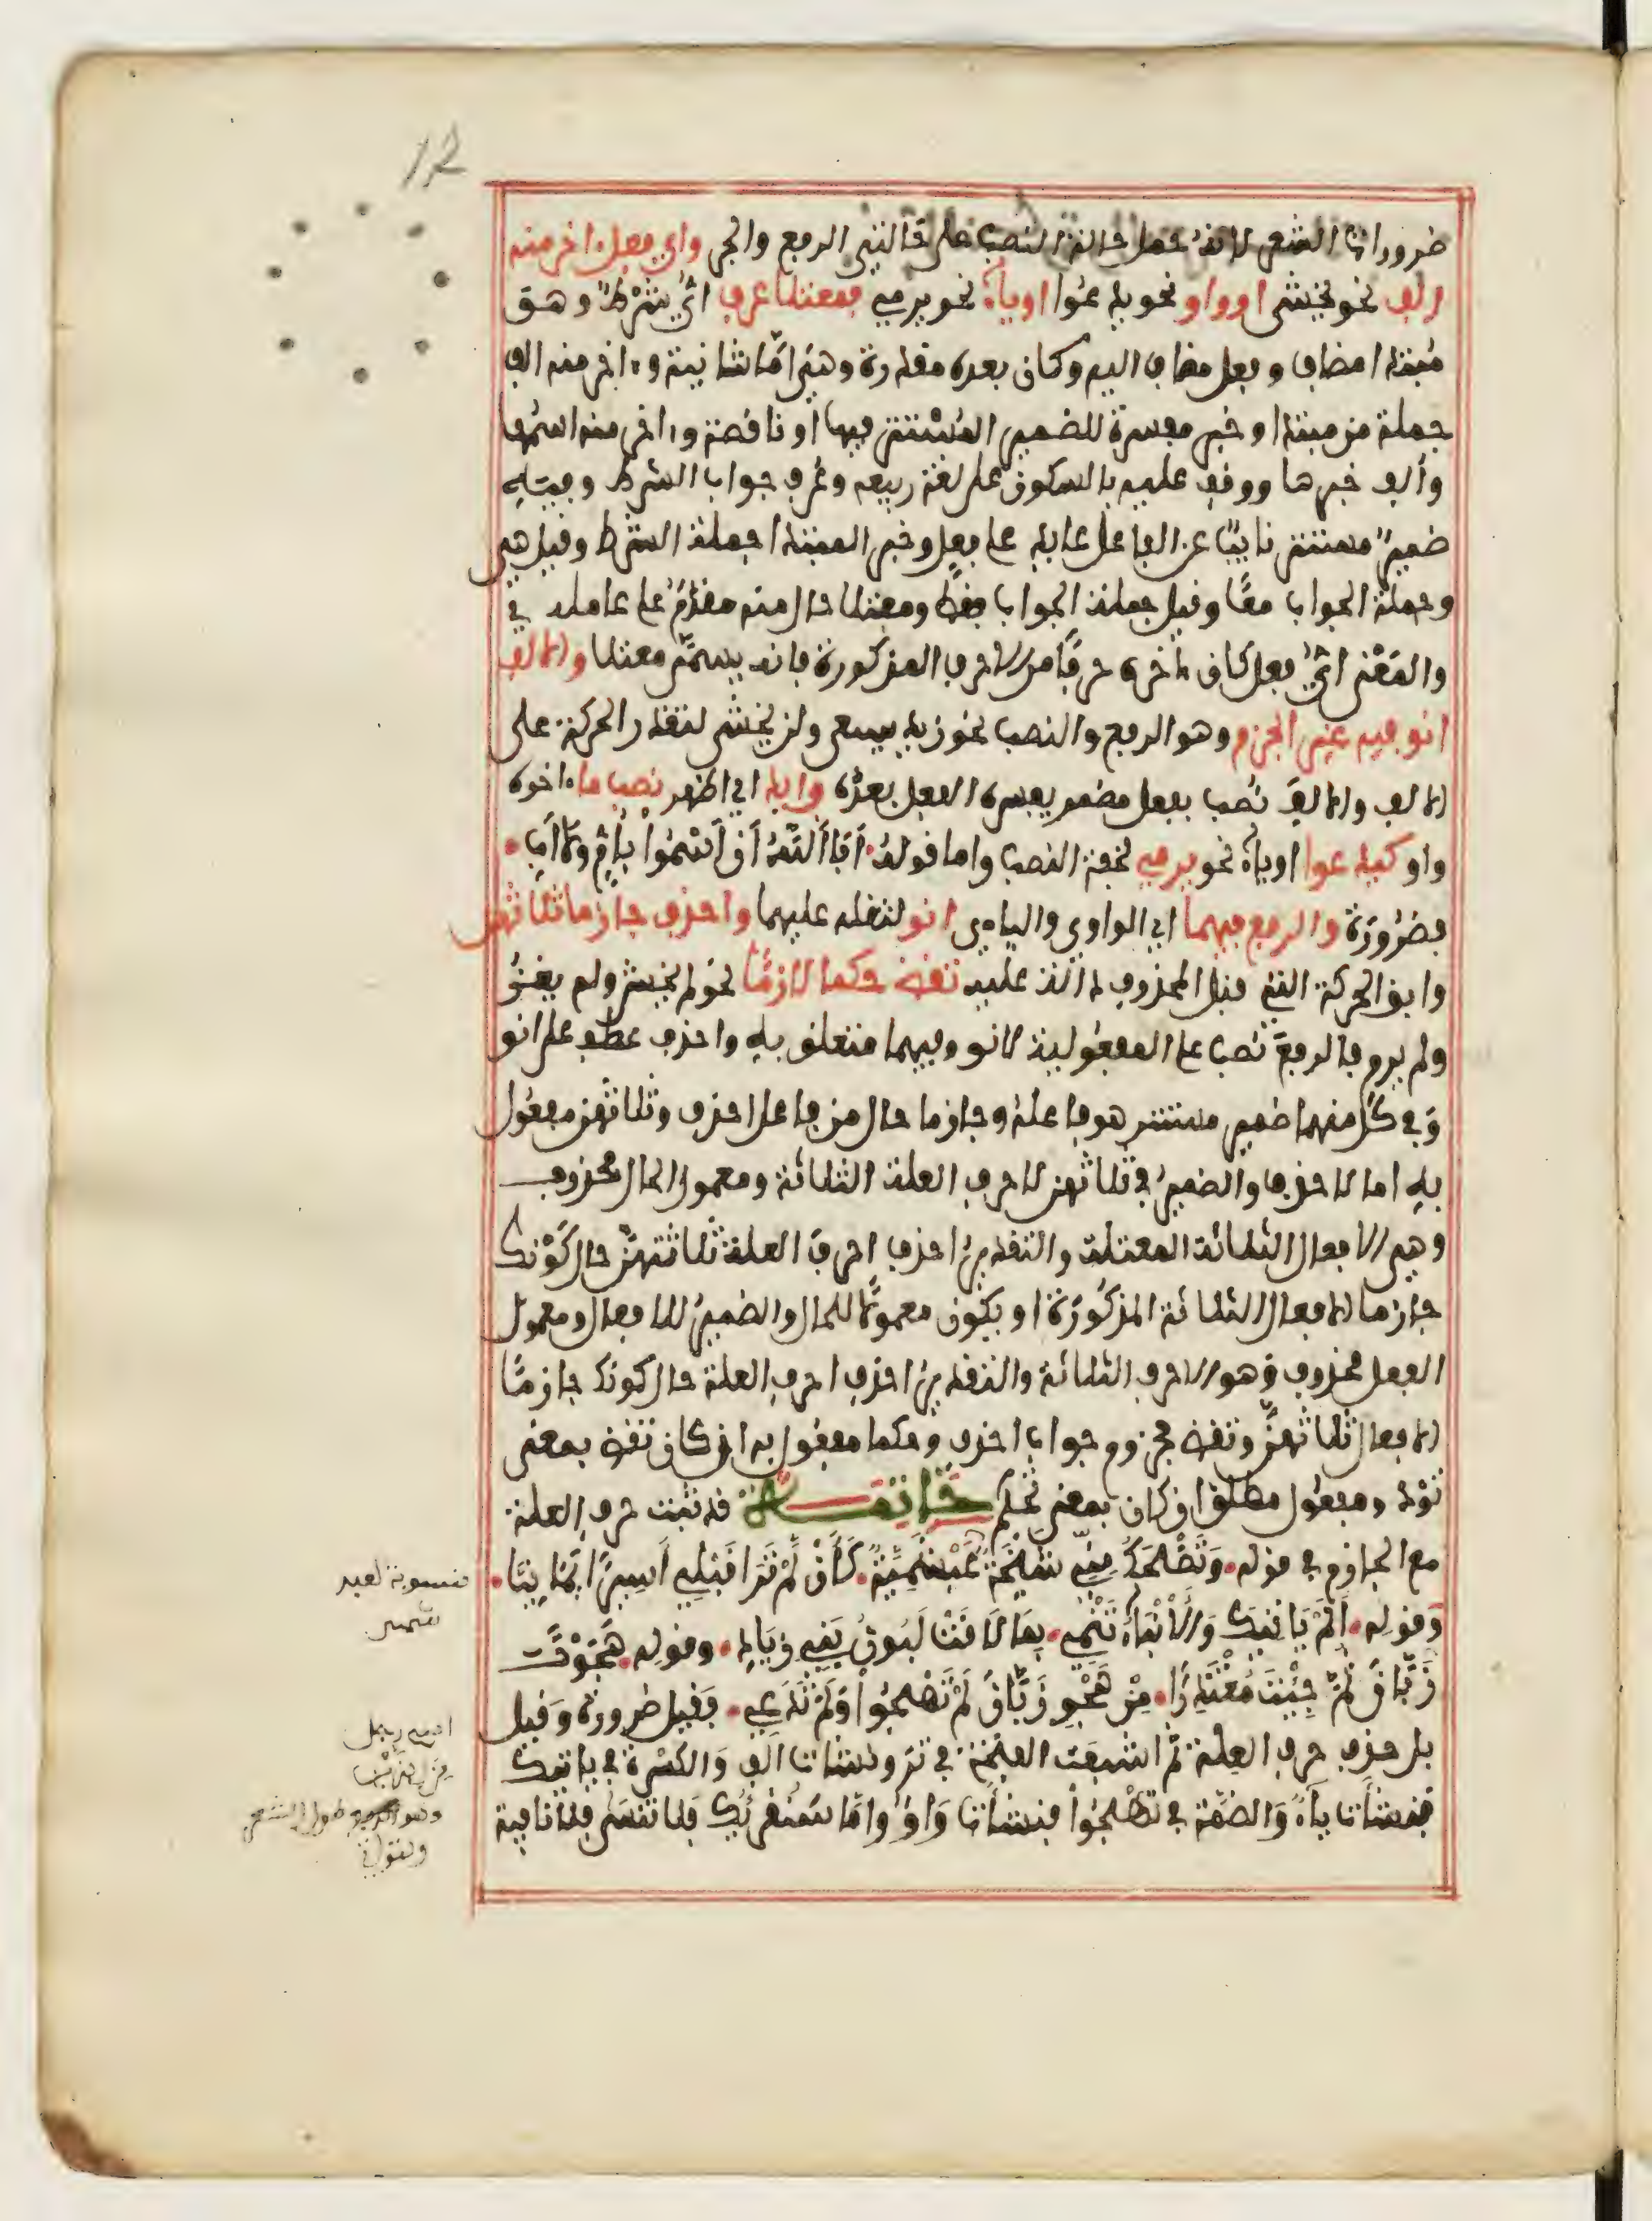 12
ضرورات الشعر لانه حمل حالة النصب على حالتي الرفع والجر واي فعل ءاخر منه
الف نحو يخشى او واو نحو يدعوا او ياء نحو يرمي فمعتلا عرف اي شرط وهو
مبتدا مضاف وفعل مضاف اليه وكان بعده مقدرة وهي اما شانية وءاخر منه الف
جملة من مبتدا وخبر مفسرة للضمير المستتر فيها او ناقصة وءاخر منه اسمها
والف خبرها ووقف عليه بالسكون على لغة ربيعه وعرف جواب الشرط وفيه
ضمير مستتر نايبا عن الفاعل عايد على فعل وخبر المبتدا جملة الشرط وقيل هي
وجملة الجواب معا وقيل جملة الجواب فقط ومعتلا حال منه مقدم على عامله في
والمعنى اي فعل كان ءاخره حرفا من الاحرف المذكورة فانه يسمى معتلا والالف
انو فيه غير الجزم وهو الرفع والنصب نحو زيد يسعى ولن يخشى لتعذر الحركة على
الالف والالف نصب بفعل مضمر يفسره الفعل بعده وابد اي اظهر نصب ما ءاخره
واو كيدعوا او ياء نحو يرمي لخفة النصب واما قوله • أبا الله أن أسموا بأم ولا أب •
فضرورة والرفع فيهما اي الواوي والياءي انو لثقله عليهما واحذف جازما ثلاثهن
وابق الحركة التي قبل المحذوف دالة عليه تقض حكما لازما نحو لم يخش ولم يغز
ولم يرم فالرفع نصب على المفعولية لانو وفيهما متعلق به واحذف عطف على انو
وفي كل منهما ضمير مستتر هو فاعله وجازما حال من فاعل احذف وثلاثهن مفعول
به اما لاحذف والضمير في ثلاثهن لاحرف العلة الثلاثة ومعمول الحال محذوف
وهي الافعال الثلاثة المعتلة والتقدير احذف احرف العلة ثلاثتهن حال كونك
جازما الافعال الثلاثة المذكورة او يكون معمولا للحال والضمير للافعال ومعمول
الفعل محذوف وهو الاحرف الثلاثة والتقدير احذف احرف العلة حال كونك جازما
الافعال ثلاثهن وتقض مجزوم جواب احذف وحكما مفعول به ان كان تقض بمعنى
تؤد ومفعول مطلق ان كان بمعنى تحكم خاتمــة قد تثبت حرف العلة
مع الجازم في قوله • وتضحك مني شيخة عبشمية • كأن لم ترا قبلي أسيرا يمانيا •
وقوله • ألم ياتيك والأنباء تنمي • بما لاقت لبون بني زياد • وقوله • هجوت
زبان ثم جئت معتذرا • من هجو زبان لم تهجوا ولم تدع • فقيل ضرورة وقيل
بل حذف حرف العلة ثم اشبعت الفتحة في تر ونشات الف والكسرة في ياتيك
فنشأت ياء والضمة في تهجوا فنشأت واو واما سنقرئك فلا تنسى فلا نافية
منسوبة لعبد
شمس
اسم رجل
وهو طول الشعر